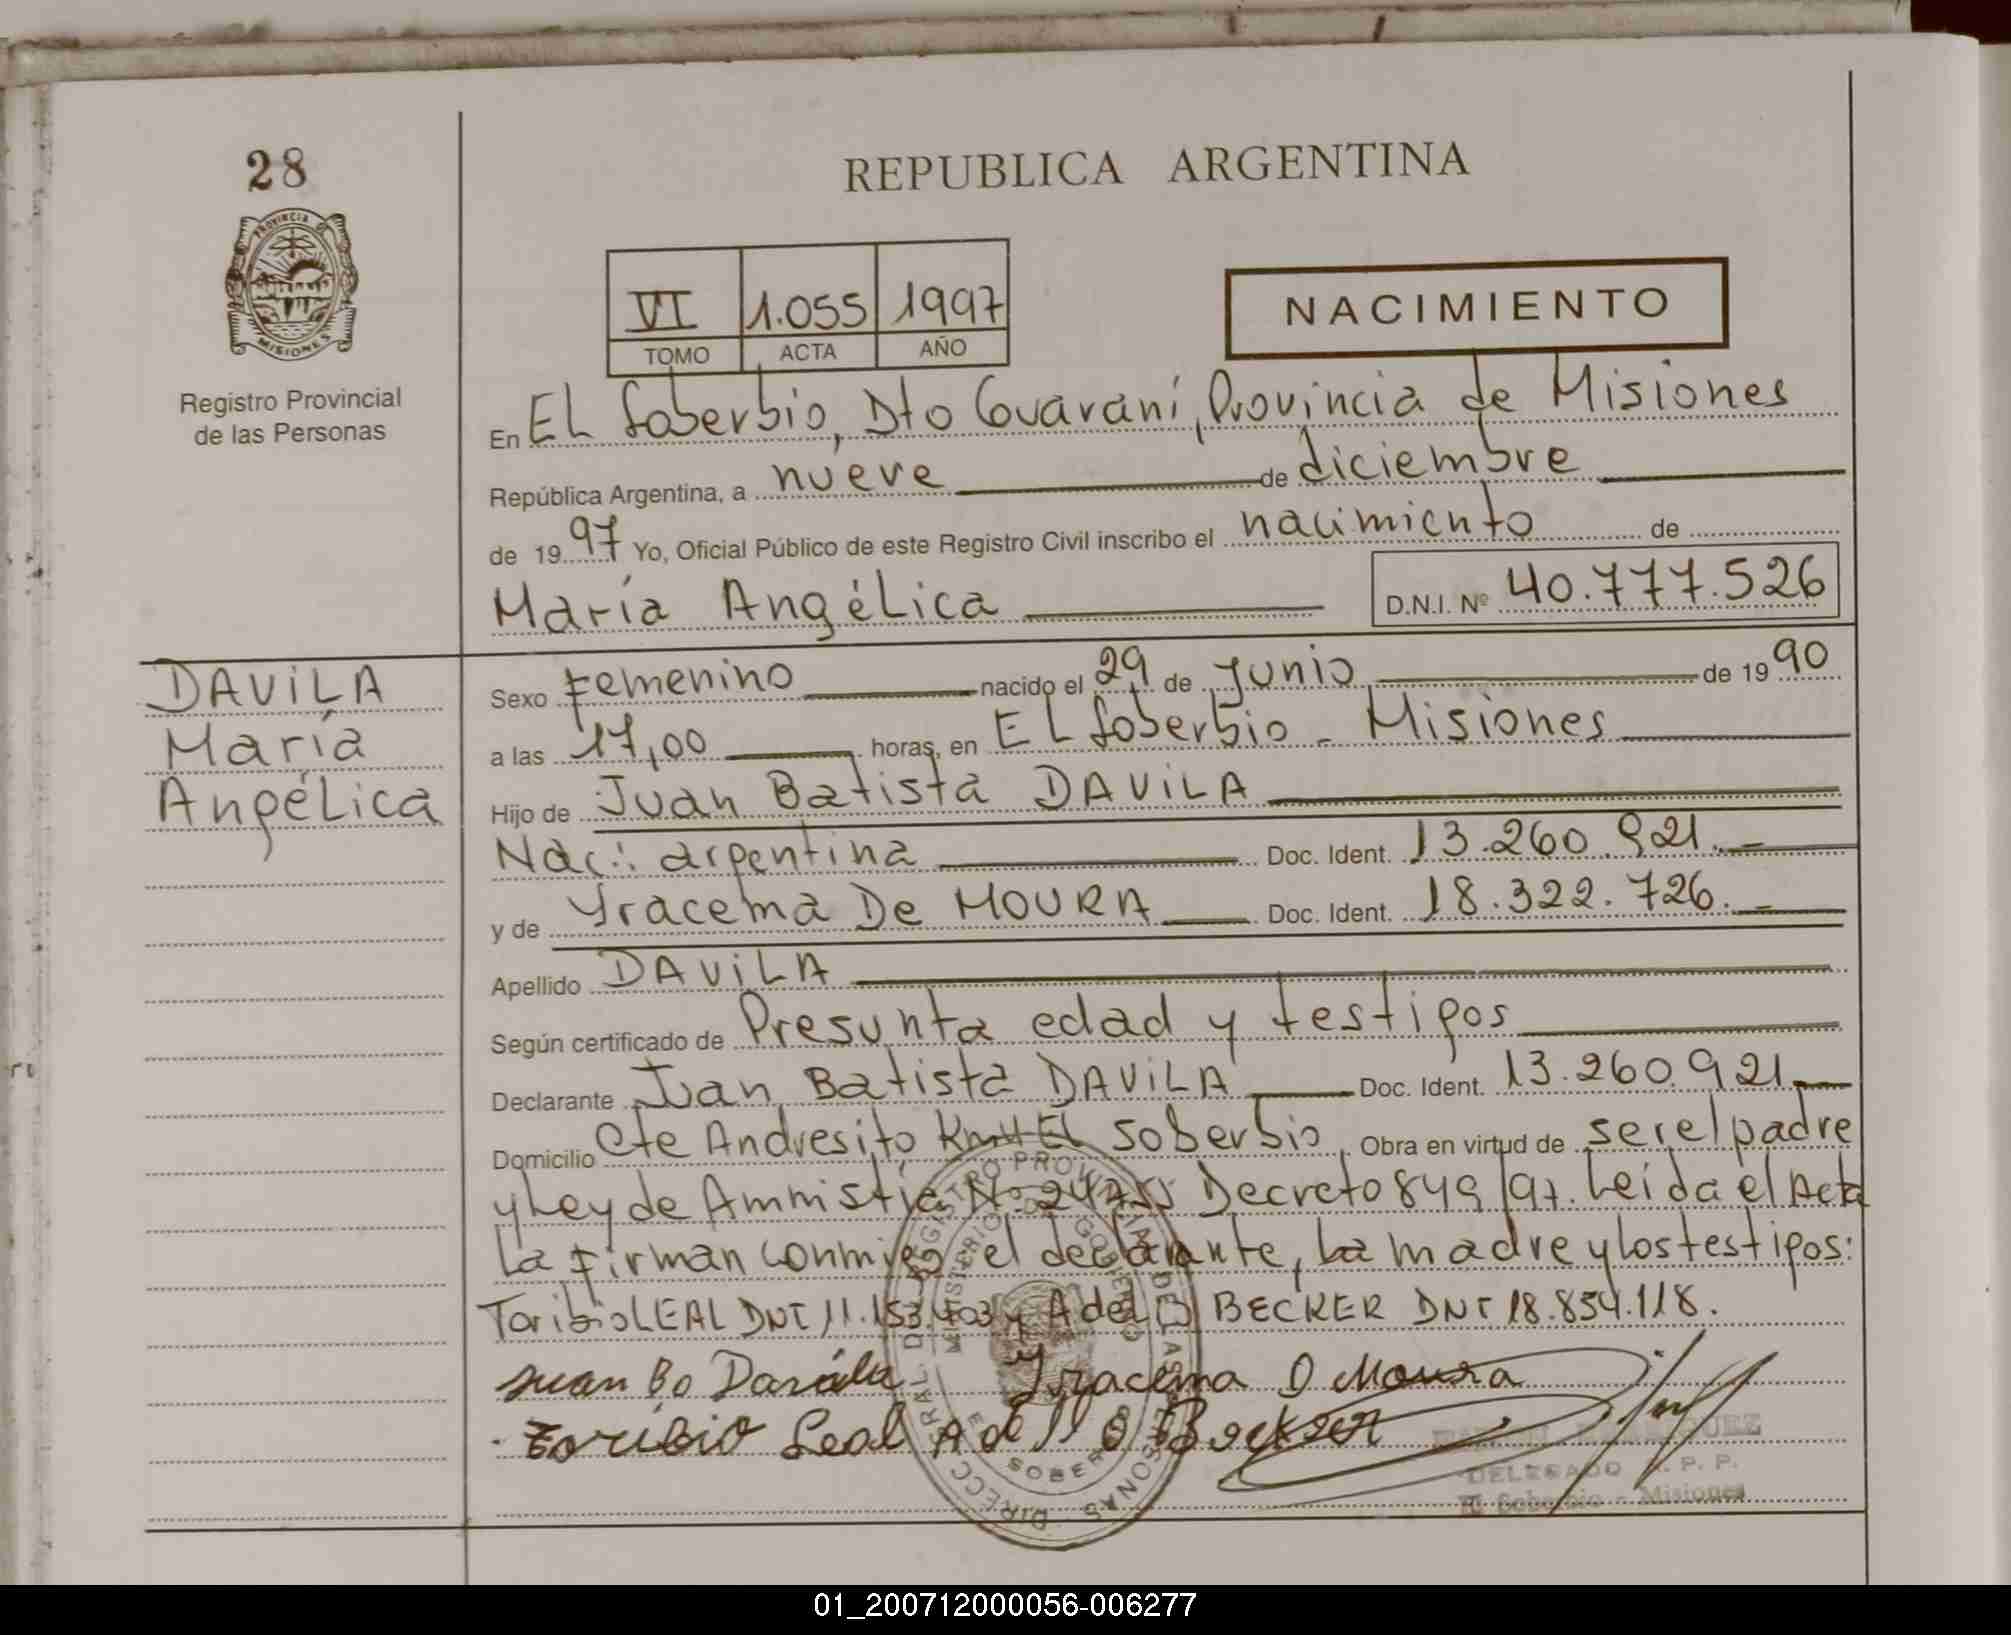 28
PROVINCIA DE
MISIONES
Registro Provincial
de las Personas
REPUBLICA ARGENTINA
VI 1.055 1997
TOMO ACTA AÑO
NACIMIENTO
En EL Soberbio, Dto Guaraní, Provincia de Misiones
República Argentina, a nueve de diciembre
de 1997 Yo, Oficial Público de este Registro Civil inscribo el nacimiento de
María Angélica D.N.I. Nº 40.777.526
DAVILA
María
Angélica
Sexo Femenino nacido el 29 de Junio de 1990
a las 17,00 horas, en EL Soberbio - Misiones
Hijo de Juan Batista DAVILA
Nac: argentina Doc. Ident. 13.260.921.-
y de Yracema De MOURA Doc. Ident. 18.322.726.-
Apellido DAVILA
Según certificado de Presunta edad y testigos
Declarante Juan Batista DAVILA Doc. Ident. 13.260.921
Domicilio Cte Andresito Km4 El Soberbio Obra en virtud de ser el padre
y Ley de Amnistía Nº 24755 Decreto 849/97. Leída el Acta
La firman conmigo el declarante, La madre y los testigos:
Toribio LEAL DNI 11.153.403 y Adelio BECKER DNI 18.854.118.
Juan Ba Davála Yracema D Moura
Toribio Leal Adello Becker
DELEGADO R. P. P.
El Soberbio - Misiones
01_200712000056-006277